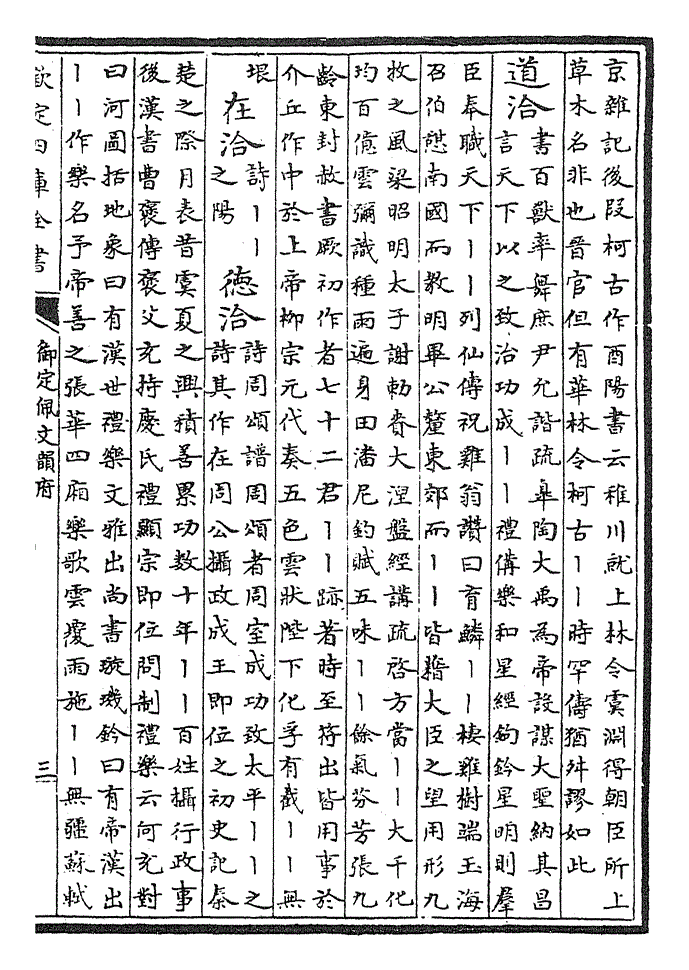 京雜記後段柯古作酉陽書云稚川就上林令虞淵得朝臣所上
草木名非也晉官但有華林令柯古丨丨時罕儔猶舛謬如此
道洽
書百獸率舞庶尹允諧疏皋陶大禹為帝設謀大聖納其昌
言天下以之致治功成丨丨禮備樂和星經鉤鈐星明則羣
臣奉職天下丨丨列仙傳祝雞翁讚曰育鱗丨丨棲雞樹端玉海
召伯諶南國而教明畢公釐東郊而丨丨皆揩大臣之望用形九
牧之風梁昭明太子謝勑賚大涅盤經講疏啓方當丨丨大千化
均百億雲彌識種雨遍身田潘尼釣賦五味丨丨餘氣芬芳張九
齡東封赦書厥初作者七十二君丨丨跡著時至符出皆用事於
介丘作中於上帝柳宗元代奏五色雲狀陛下化孚有截丨丨無
垠
在洽
詩丨丨
之陽
德洽
詩周頌譜周頌者周室成功致太平丨丨之
詩其作在周公攝政成王即位之初史記秦
楚之際月表昔虞夏之興積善累功数十年丨丨百姓攝行政事
後漢書曹襃傳襃父充持慶氏禮顯宗即位問制禮樂云何充對
曰河圖括地象曰有漢世禮樂文雅出尚書璇璣鈐曰有帝漢出
丨丨作樂名予帝善之張華四廂樂歌雲覆雨施丨丨無疆蘇軾
欽定四庫全書
御定佩文韻府
三